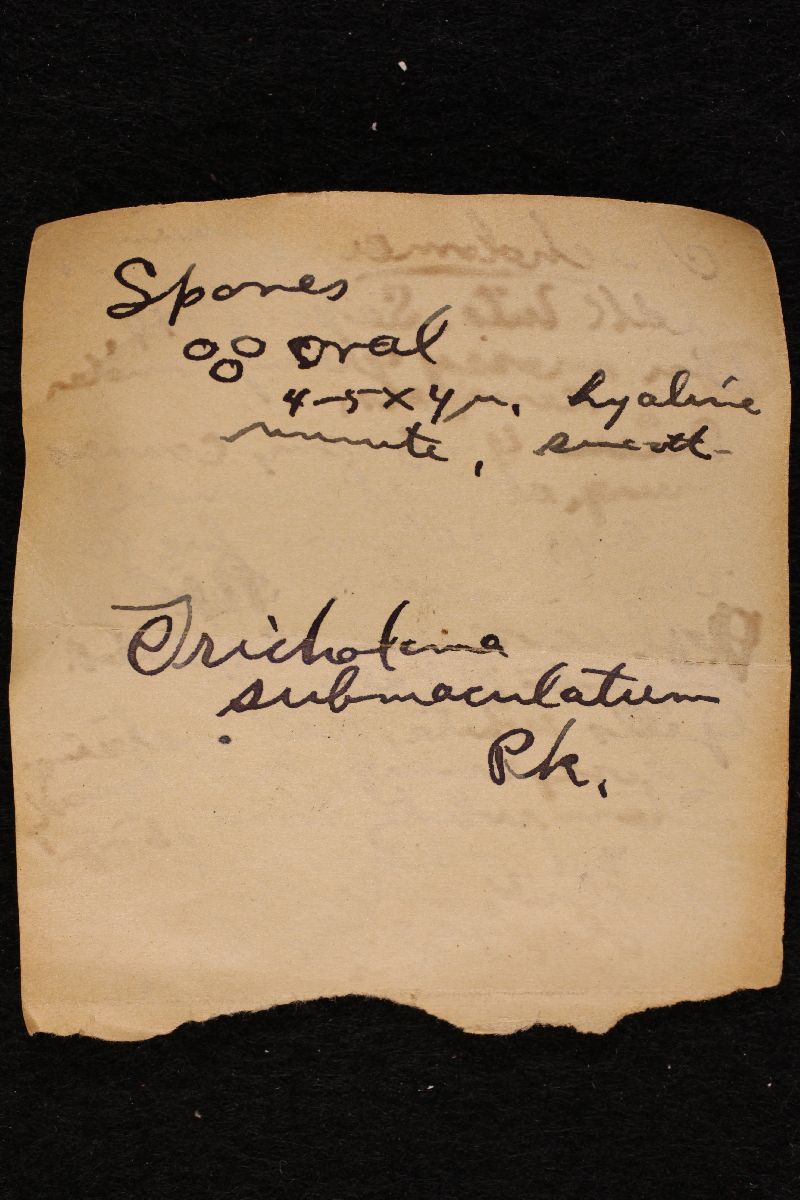 Spores
oval
4-5 x 4 µ, hyaline
minute, smooth
Tricholoma
submaculatum
Pk.